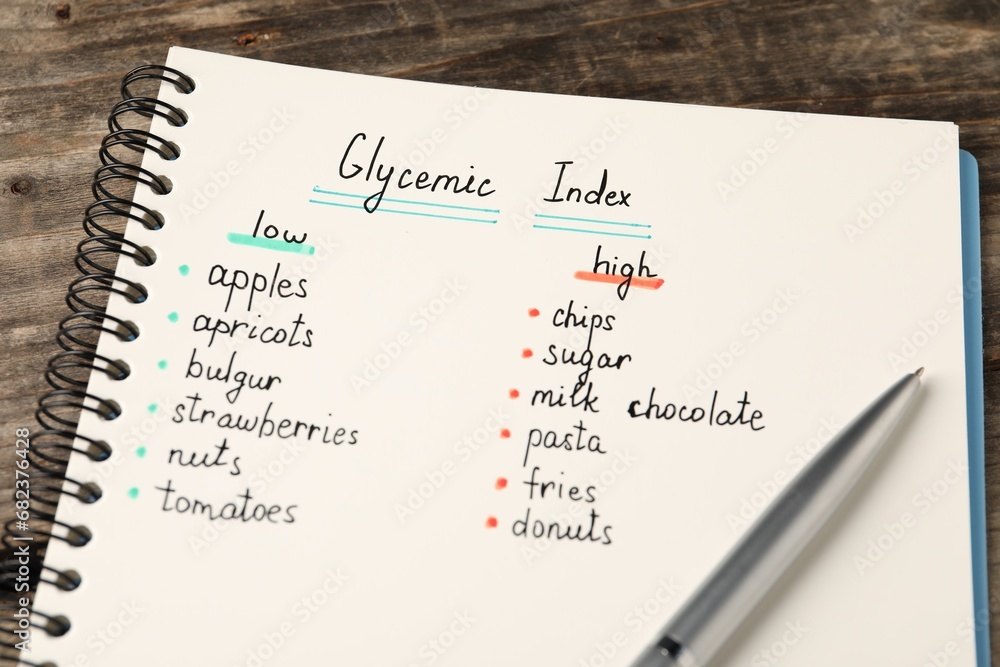 Glycemic Index
low
apples
apricots
bulgur
strawberries
nuts
tomatoes
high
chips
sugar
milk chocolate
pasta
fries
donuts
Adobe Stock | #682376428